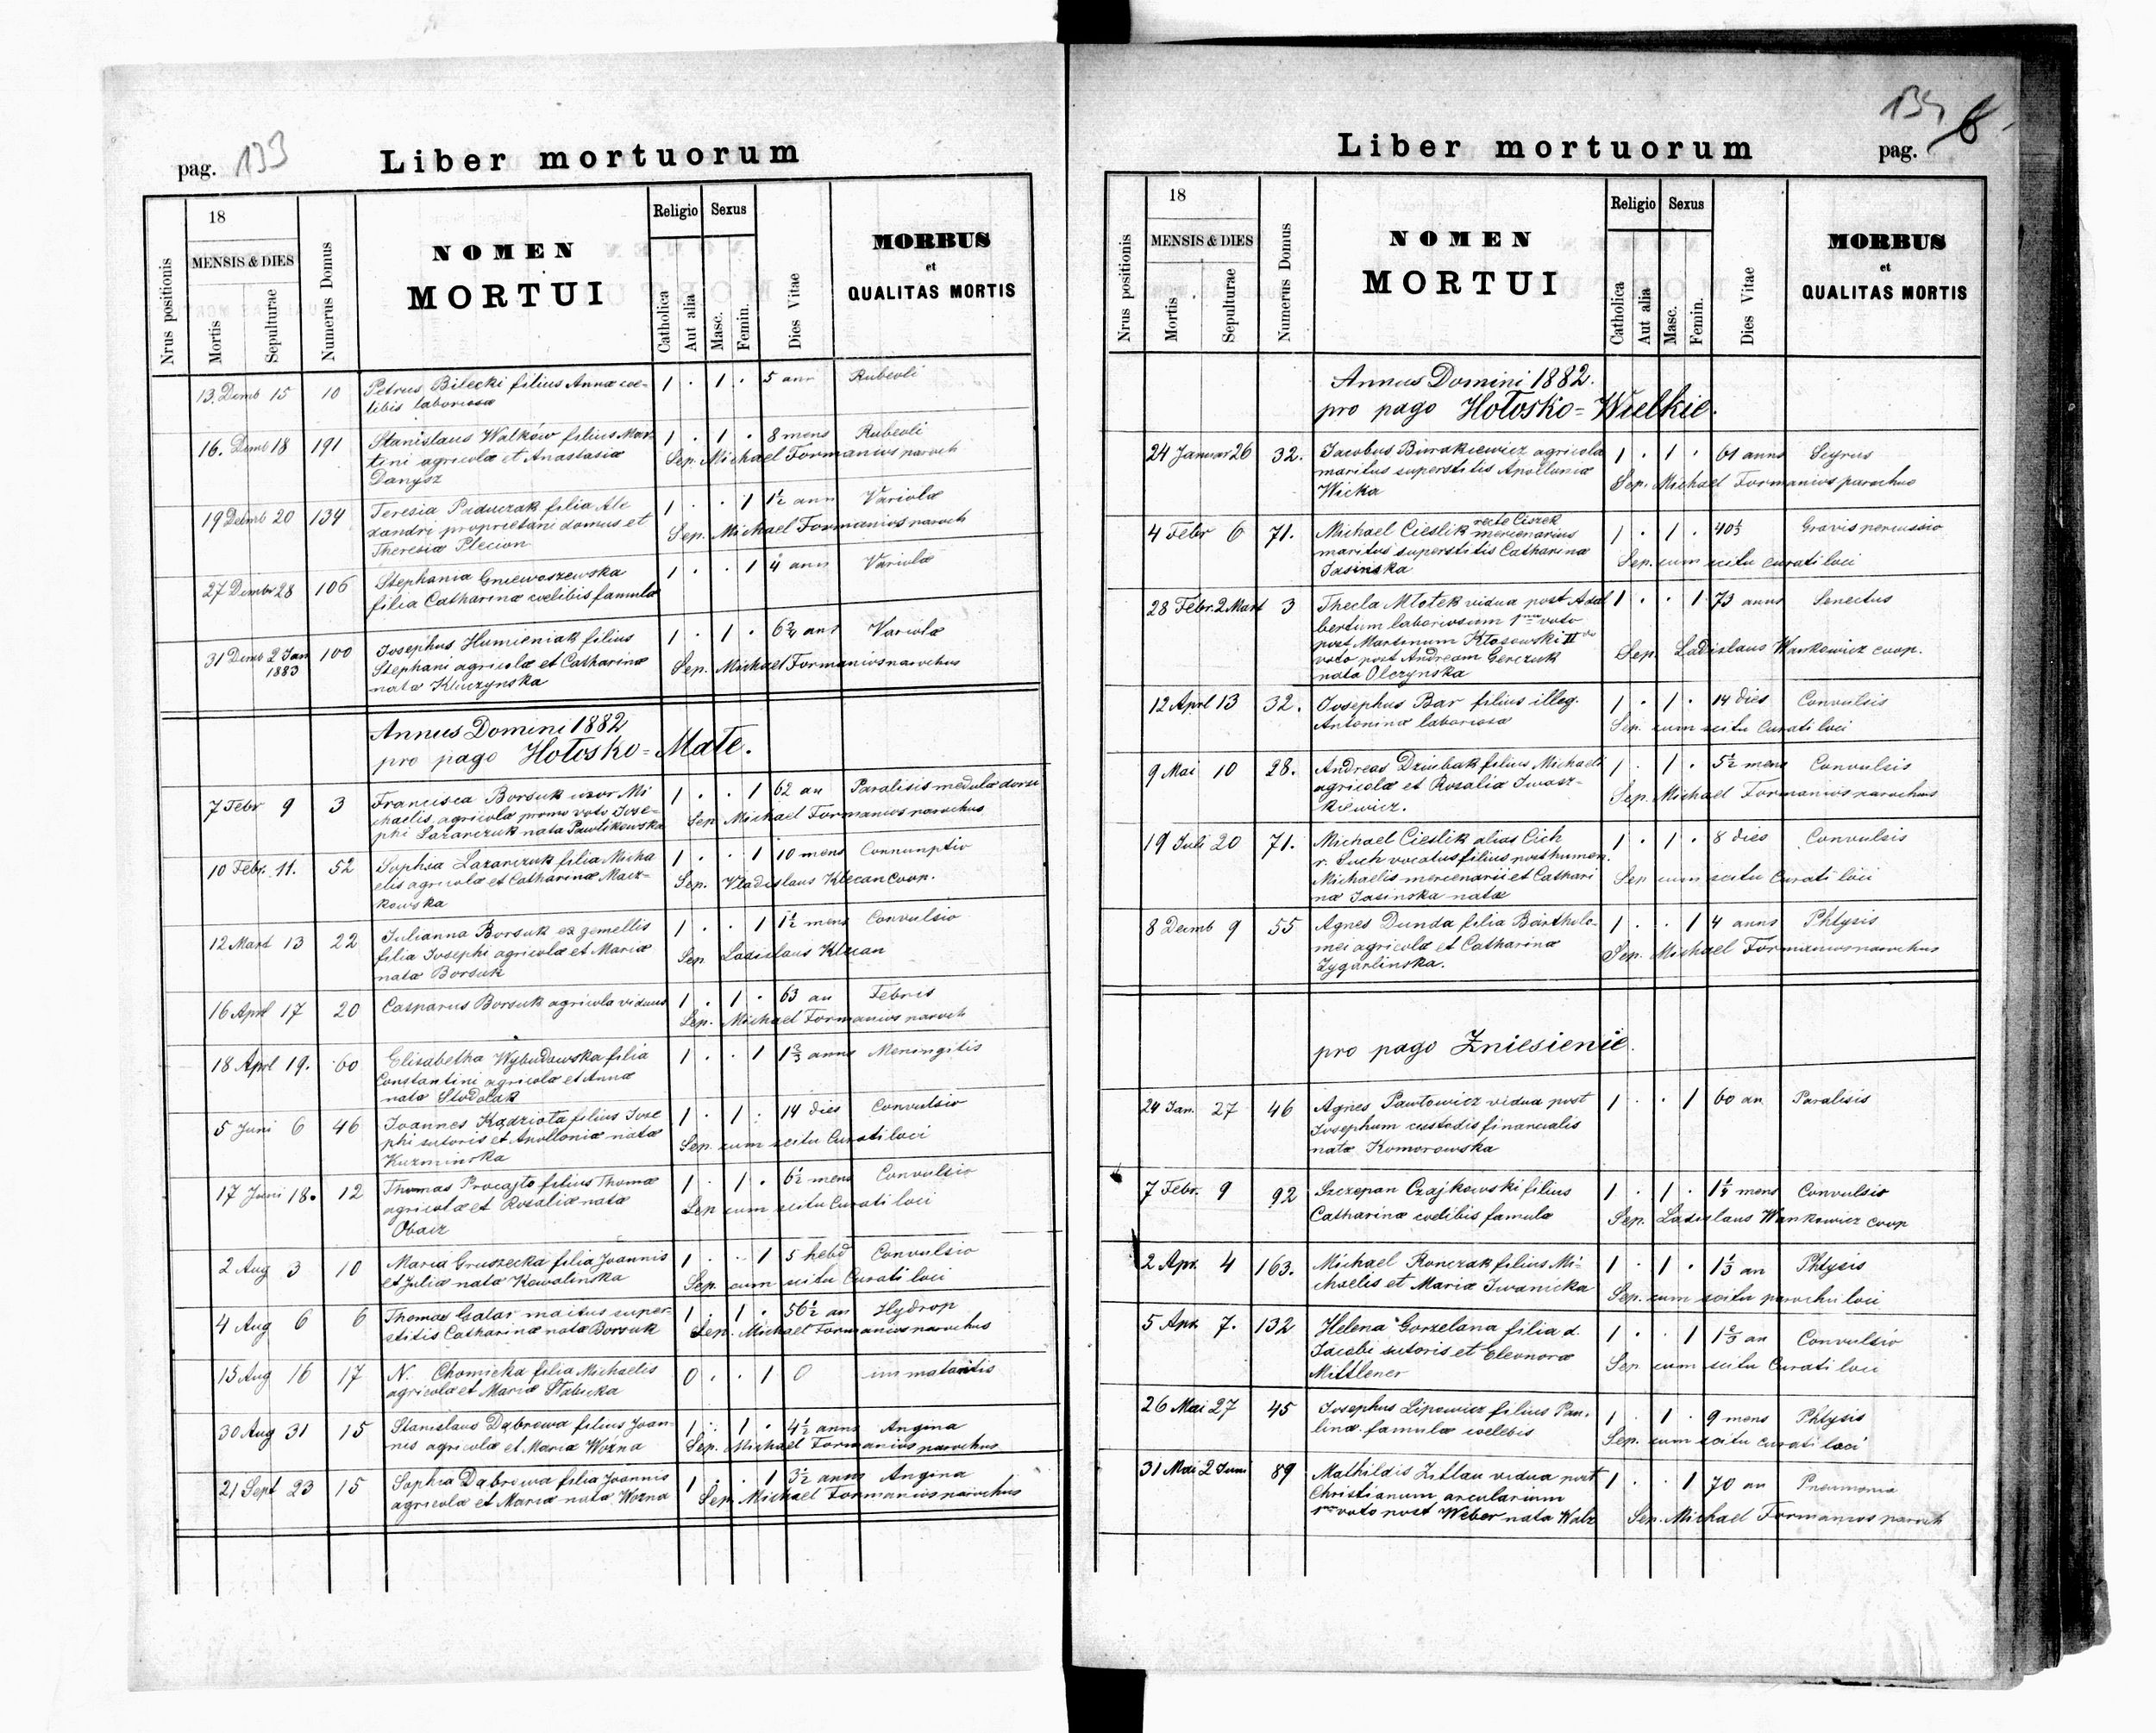 pag. 133
Liber mortuorum
Nrus positionis
18
MENSIS & DIES
Mortis
Sepulturae
Numerus Domus
NOMEN
MORTUI
Religio
Sexus
Catholica
Aut alia
Masc.
Femin.
Dies Vitae
MORBUS
et
QUALITAS MORTIS
13. Decmb 15 10 Petrus Bilecki filius Annæ coe- 1 . 1 . 5 ann Rubeoli
libis laboriosa
16. Decmb 18 191 Stanislaus Walków filius Mar- 1 . 1 . 8 mens Rubeoli
tini agricolæ et Anastasiæ Sep. Michael Formanios paroch
Danysz
19 Decmb 20 134 Teresia Paduczak filia Ale 1 . . 1 1½ ann Variolæ
xandri proprietarii domus et Sep. Michael Formanios paroch
Theresiæ Plecion
27 Decmbr 28 106 Stephania Gniewoszewska 1 . . 1 4 ann Variolæ
filia Catharinæ coelibis famulæ
31 Decmb 2 Jan 1883 100 Josephus Humieniak filius 1 . 1 . 6¾ ann Variolæ
Stephani agricolæ et Catharinæ Sep. Michael Formanios parochus
nata Kluczynska
Annus Domini 1882
pro pago Hołosko=Małe.
7 Febr 9 3 Francisca Borsuk uxor Mi 1 . . 1 62 an Paralisis medulæ dorsi
chaelis agricola primo voto Jose- Sep. Michael Formanios parochus
phi Lazarczuk nata Pawlikowska
10 Febr. 11. 52 Sophia Lazarczuk filia Micha 1 . . 1 10 mens Connumptio
elis agricolæ et Catharinæ Macz- Sep. Vladislaus Klecan coop.
kowska
12 Mart 13 22 Julianna Borsuk ex gemellis 1 . . 1 1½ mens Convulsio
filia Josephi agricolæ et Mariæ Sep. Ladislaus Klecan
nata Borsuk
16 Aprl 17 20 Casparus Borsuk agricola viduus 1 . 1 . 63 an Febris
Sep. Michael Formanios paroch
18 Aprl 19. 60 Elisabetha Wybudowska filia 1 . . 1 1⅔ anns Meningitis
Constantini agricolæ et Annæ
nata Stodolak
5 Juni 6 46 Joannes Kądziota filius Jose 1 . 1 . 14 dies Convulsio
phi sutoris et Apolloniæ nata Sep. cum scitu Curati loci
Kuzminska
17 Juni 18. 12 Thomas Procajło filius Thomæ 1 . 1 . 6½ mens Convulsio
agricolæ et Rosaliæ nata Sep cum scitu Curati loci
Obacz
2 Aug 3 10 Maria Gruszecka filia Joannis 1 . . 1 5 hebd Convulsio
et Julia nata Kowalinska Sep. cum scitu Curati loci
4 Aug 6 6 Thomas Galas maritus super- 1 . 1 . 56½ an Hydrop
stitis Catharinæ nata Borsuk Sep. Michael Formanios parochus
15 Aug 16 17 N. Chomicka filia Michaelis 0 . . 1 0
agricolæ et Mariæ Stabicka
30 Aug 31 15 Stanislaus Dąbrowa filius Joan- 1 . 1 . 4½ anns Angina
nis agricolæ et Mariæ Woźna Sep. Michael Formanios parochus
21 Sept 23 15 Sophia Dąbrowa filia Joannis 1 . . 1 3½ anns Angina
agricolæ et Mariæ nata Wozna Sep. Michael Formanios parochus
134
Liber mortuorum
pag. 6
Nrus positionis
18
MENSIS & DIES
Mortis
Sepulturae
Numerus Domus
NOMEN
MORTUI
Religio
Sexus
Catholica
Aut alia
Masc.
Femin.
Dies Vitae
MORBUS
et
QUALITAS MORTIS
Annus Domini 1882.
pro pago Hołosko=Wielkie.
24 Januar 26 32. Jacobus Burakiewicz agricola 1 . 1 . 61 anns Scyrus
maritus superstitis Apolloniæ Sep. Michael Formanios parochus
Wicka
4 Febr 6 71. Michael Cieslik recte Ciszek mercenarius 1 . 1 . 40⅓ Gravis percussio
maritus superstitis Catharinæ Sep. cum scitu curati loci
Jasinska
28 Febr. 2 Mart 3 Thecla Młotek vidua post Adal 1 . . 1 73 anns Senectus
bertum laboriosum 1mo voto
post Martinum Kłosowski IIdo Sep. Ladislaus Wankowicz coop.
voto post Andream Gerczuk
nata Olczynska
12 Aprl 13 32. Josephus Bar filius illeg. 1 . 1 . 14 dies Convulsis
Antoninæ laboriosa Sep. cum scitu Curati loci
9 Mai 10 28. Andreas Dziubak filius Michaeli 1 . 1 . 5½ mens Convulsis
agricolæ et Rosalia Iwasz- Sep. Michael Formanios parochus
kiewicz.
19 Juli 20 71. Michael Cieslik alias Cich 1 . 1 . 8 dies Convulsis
r. Such vocatus filius posthumen.
Michaelis mercenarii et Cathari Sep cum scitu Curati loci
næ Jasinska nata
8 Decmb 9 55 Agnes Dunda filia Bartholo- 1 . . 1 4 anns Phtysis
mei agricolæ et Catharina Sep. Michael Formanios parochus
Zygarlinska.
pro pago Zniesienie.
24 Jan. 27 46 Agnes Pawłowicz vidua post 1 . . 1 60 an Paralisis
Josephum custodis financialis
nata Komorowska
7 Febr. 9 92 Szczepan Czajkowski filius 1 . 1 . 1¼ mens Convulsio
Catharinæ coelibis famulæ Sep. Ladislaus Wankowicz coop
2 Apr. 4 163. Michael Ronczak filius Mi- 1 . 1 . 1⅓ an Phtysis
chaelis et Mariæ Iwanicka Sep. cum scitu parochi loci
5 Apr. 7. 132 Helena Gorzelana filia d. 1 . . 1 1⅔ an Convulsio
Jacobi sutoris et Eleonoræ Sep cum scitu Curati loci
Mittlener
26 Mai 27 45 Josephus Lipowicz filius Pau- 1 . 1 . 9 mens Phtysis
linæ famulæ coelebis Sep. cum scitu curati loci
31 Mai 2 Juni 89 Mathildis Zittau vidua post 1 . . 1 70 an Pneumonia
Christianum arcularium
1mo voto post Weber nata Walz Sep. Michael Formanios paroch